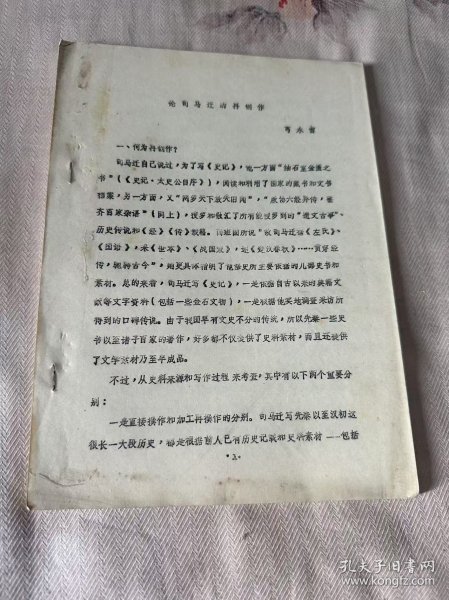 论司马迁的再创作
可永雪
一、何为再创作？
司马迁自己说过，为了写《史记》，他一方面“䌷石室金匮之
书”（《史记·太史公自序》），阅读和利用了国家的藏书和文书
档案，另一方面，又“网罗天下放失旧闻”，“厥协六经异传，整
齐百家杂语”（同上），搜罗和融汇了所有能搜罗到的“遗文古事”、
历史传说和《经》《传》载籍。而班固所说“故司马迁据《左氏》、
《国语》，采《世本》、《战国策》，述《楚汉春秋》……贯穿经
传，驰骋古今”，则更具体指明了他据史所主要依据的几部史书和
素材。总的来看，司马迁写《史记》，一是依据自古以来的典籍文
献等文字资料（包括一些金石文物），一是依据他实地调查采访所
得到的口碑传说。由于我国早有文史不分的传统，所以先秦一些史
书以至诸子百家的著作，好多都不仅提供了史料素材，而且还提供
了文学素材乃至半成品。
不过，从史料来源和写作过程来考查，其中有以下两个重要分
别：
一是直接操作和加工再操作的分别。司马迁写先秦以至汉初这
很长一大段历史，都是根据前人已有历史记载和史料素材——包括
·1·
孔夫子旧书网
www.kongfz.com